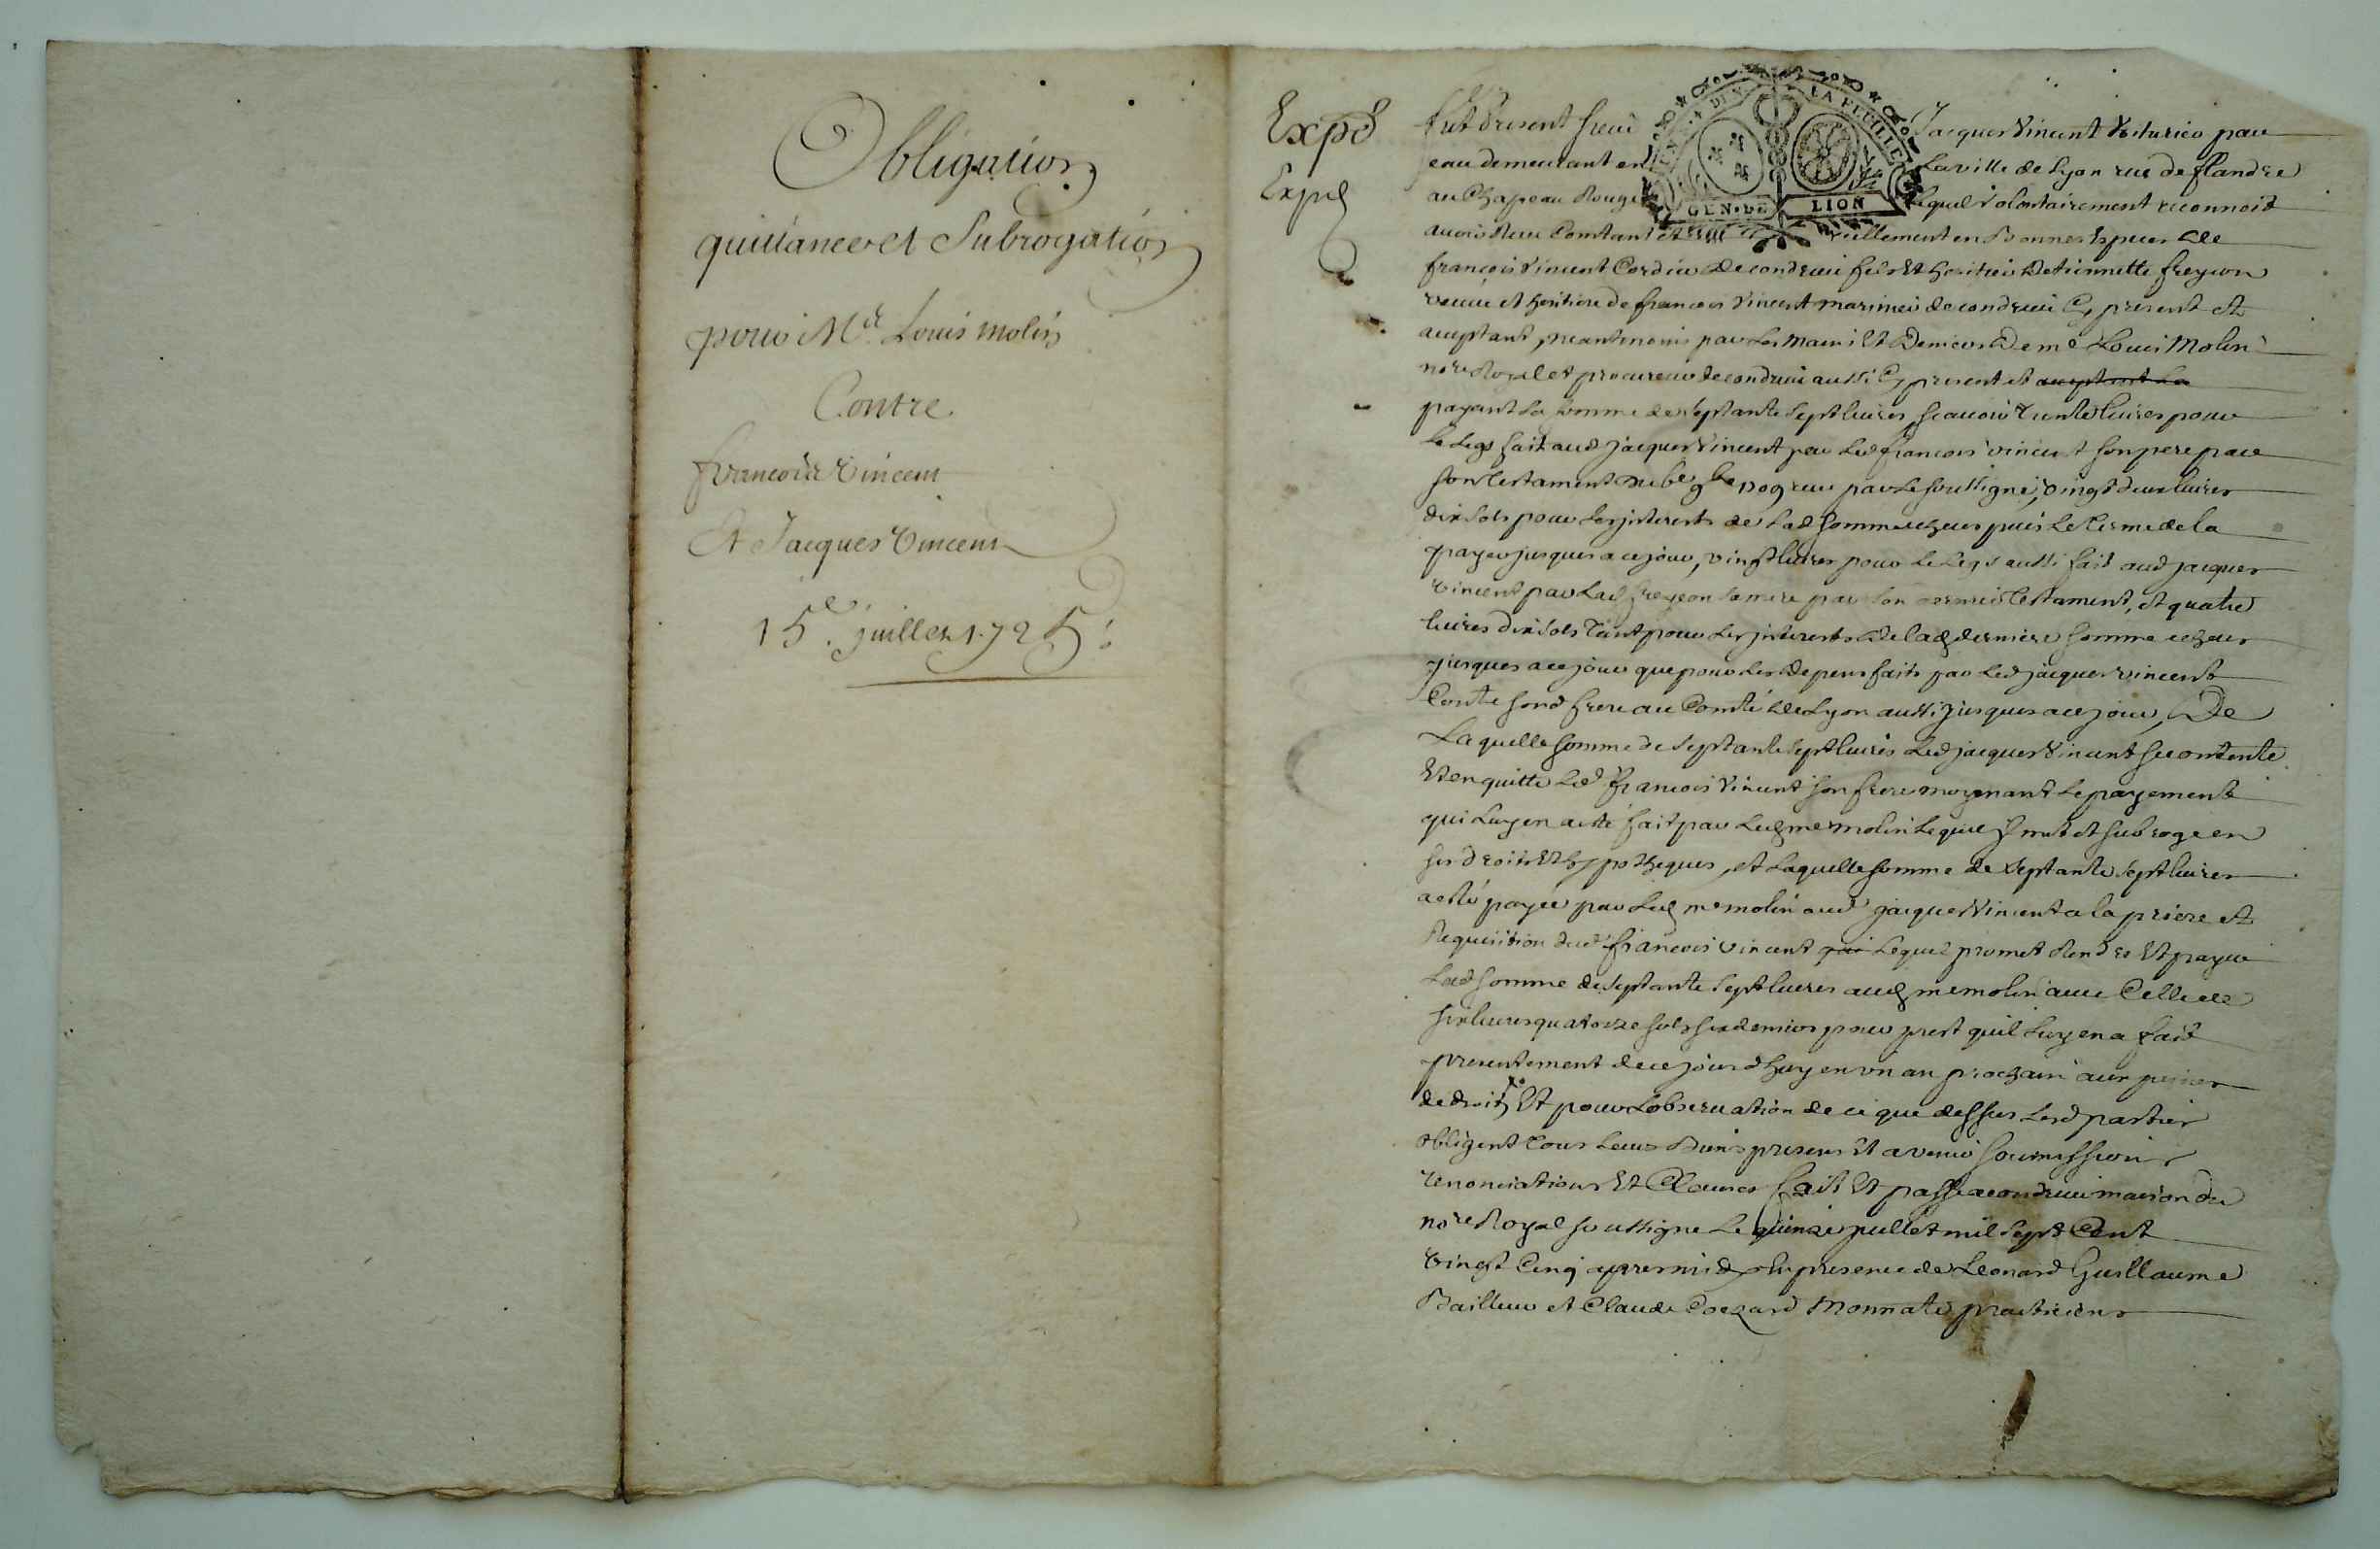 Obligation
quittance et Subrogation
pour Me. Louis molin
Contre.
francois Vincent
Et Jacques Vincent
15e. juillet 1725
Expd
Expd
LA FEUILLE
GEN. DE LION
fut Present sieur Jacques Vincent Voiturier par
eau demeurant en La ville de Lyon rue de flandre
au Chapeau Rouge Lequel Volontairement reconnoit
avoir Receu Comtant et reellement en Bonnes Especes de
francois Vincent Cordier de condrieu fils Et heritier
veuve et heritiere de francois Vincent marinier de condrieu Cy present et
acceptant, neantmoins par Les mains Et Deniers De me Louis Molin
nore Royal et procureur de condrieu aussi Cy present et acceptant La
payant La somme de septante sept livres, scavoir trente livres pour
Le Legs fait aud jacques Vincent par Led francois vincent son pere par
son testament receu par Le soussigné, vingt deux livres
dix sols pour Les interests de Lad somme echeus puis Le terme de la
payer jusques a ce jour, vingt livres pour Le Legs aussi fait aud jacques
vincent par Lad sa mere par son dernier testament, et quatre
livres dix sols tant pour Les interests de lad derniere somme echeus
jusques a ce jour que pour Les depens faits par Led jacques vincent
Contre sond frere au Comté de Lyon aussi jusques a ce jour, De
Laquelle somme de septante sept livres Led jacques Vincent se contente
Et en quitte Led francois Vincent son frere moyenant Le payement
qui Luy en a esté fait par Led me molin Lequel Il met et subroge en
ses droits Et hypotheques, et Laquelle somme de septante sept livres
a esté payée par Led me molin aud jacques Vincent a la priere et
Requisition dud francois vincent qui Lequel promet Rendre Et payer
Lad somme de septante sept livres aud me molin avec Celle de
six livres quatorze sols six deniers pour prest quil Luy en a fait
presentement de ce jourdhuy en un an prochain aux peines
de droit, Et pour Lobservation de ce que dessus Lesd parties
obligent tous Leurs Biens presens Et avenir soumissions
renonciations Et Clauses fait Et passé a condrieu maison du
nore Royal soussigne Le quinze juillet mil sept Cent
vingt Cinq apres midy En presence de Leonard Guillaume
Bailleur et Claude Monnate practiciens